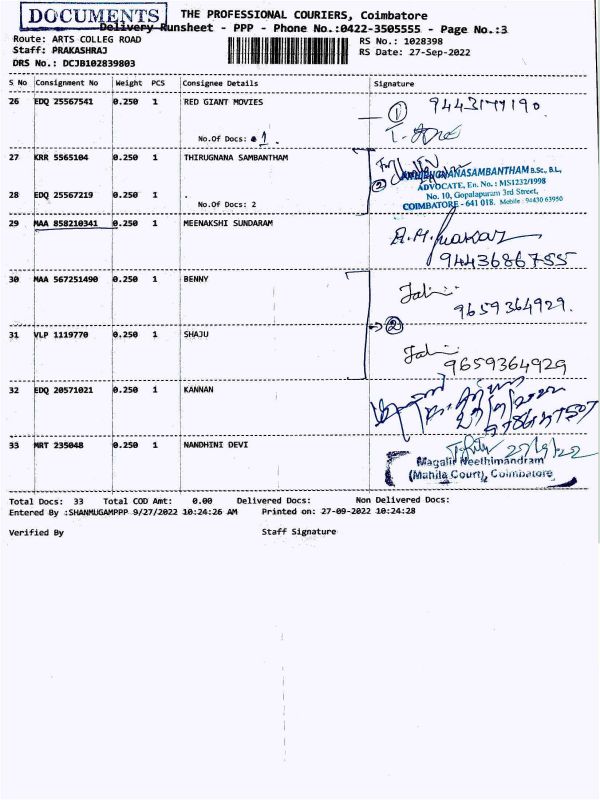 DOCUMENTS
THE PROFESSIONAL COURIERS, Coimbatore
Delivery Runsheet - PPP - Phone No.:0422-3505555 - Page No.:3
Route: ARTS COLLEG ROAD
RS No.: 1028398
Staff: PRAKASHRAJ
RS Date: 27-Sep-2022
DRS No.: DCJB102839803
S No Consignment No Weight PCS Consignee Details Signature
26 EDQ 25567541 0.250 1 RED GIANT MOVIES
1 9443177190
No.Of Docs: 1
27 KRR 5565104 0.250 1 THIRUGNANA SAMBANTHAM
For
2
B.Sc., B.L,
ADVOCATE, En. No.: MS1232/1998
28 EDQ 25567219 0.250 1 .
No. 10, Gopalapuram 3rd Street,
No.Of Docs: 2
COIMBATORE - 641 018. Mobile : 94430 63950
29 MAA 858210341 0.250 1 MEENAKSHI SUNDARAM
9443686755
30 MAA 567251490 0.250 1 BENNY
9659364929.
2
31 VLP 1119770 0.250 1 SHAJU
9659364929
32 EDQ 20571021 0.250 1 KANNAN
33 MRT 235048 0.250 1 NANDHINI DEVI
27/9/22
Magalir Neethimandram
(Mahila Court), Coimbatore
Total Docs: 33 Total COD Amt: 0.00 Delivered Docs: Non Delivered Docs:
Entered By :SHANMUGAMPPP 9/27/2022 10:24:26 AM Printed on: 27-09-2022 10:24:28
Verified By Staff Signature